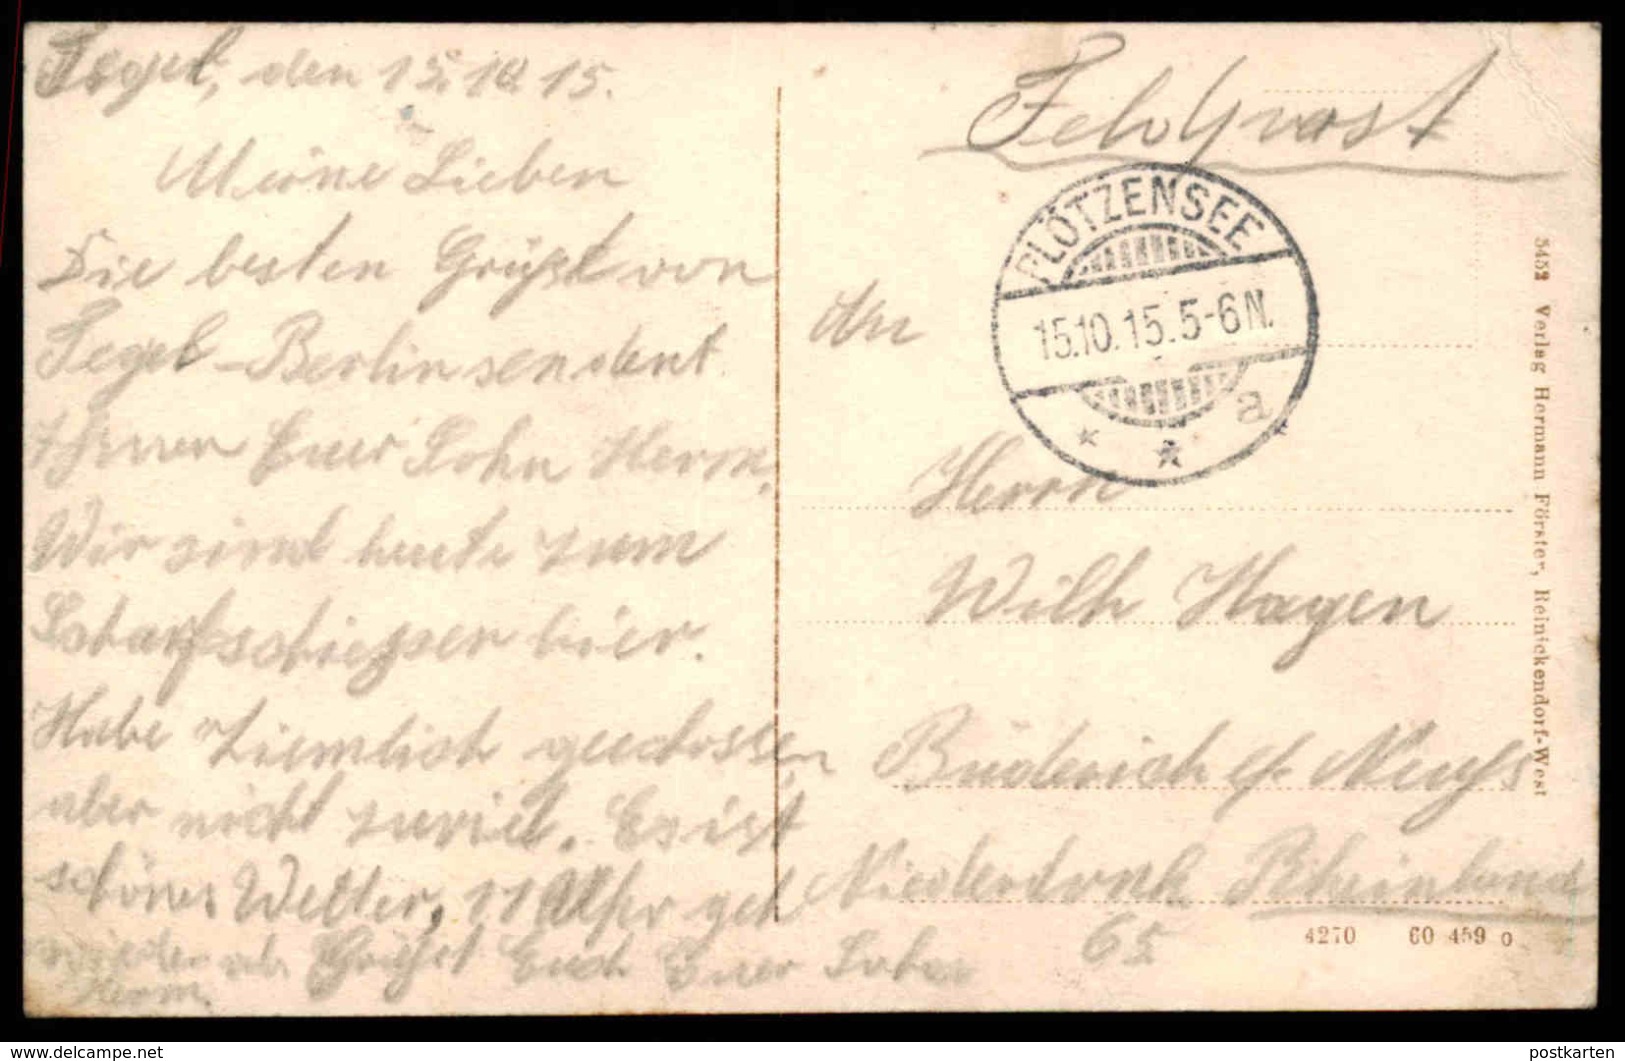 Tegel, den 15.10.15.
Meine Lieben
Die besten Grüße von
Tegel-Berlin sendent
Ihnen Euer Sohn Herm.
Wir sind heute zum
Scharfschießen hier.
Habe ziemlich geschossen
aber nicht zuviel. Es ist
schönes Wetter, 11 Uhr geht
wieder ab. Grüßt Euch Euer Sohn
Herm.
Feldpost
PLÖTZENSEE
15.10.15.5-6N.
a
An
Herrn
Wilh Hagen
Büderich b/ Neuß
Niederdonk Rheinland
65
5452 Verlag Hermann Förster, Reinickendorf-West
4270 60 459 o
postkarten
www.delcampe.net